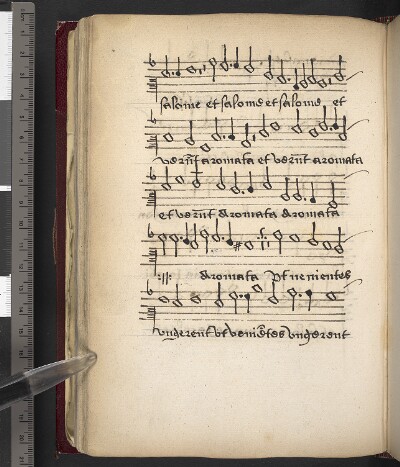 salome et salome et salome et
uerūt aromata et uerūt aromata
et uerūt aromata aromata
:||: aromata Vt uenientes
ungerent Vt veniētes ungerent